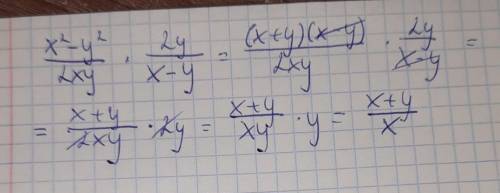 \frac{x^2-y^2}{2xy} \cdot \frac{2y}{x-y} = \frac{(x+y)(x-y)}{2xy} \cdot \frac{2y}{x-y} =
= \frac{x+y}{2xy} \cdot 2y = \frac{x+y}{xy} \cdot y = \frac{x+y}{x}